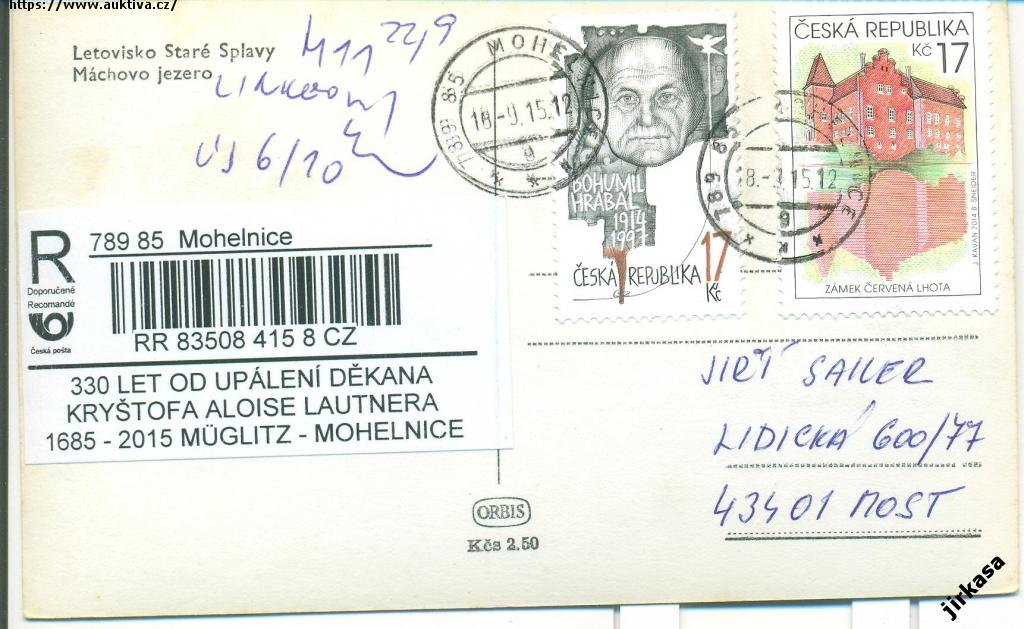 https://www.auktiva.cz/
Letovisko Staré Splavy
Máchovo jezero
22/9
ÚJ 6/10
789 85 MOHELNICE
18.-9.15.12
g
BOHUMIL
HRABAL
1914
1997
ČESKÁ REPUBLIKA 17
Kč
ČESKÁ REPUBLIKA
Kč 17
J. KAVAN 2014 B. ŠNEIDER
ZÁMEK ČERVENÁ LHOTA
789 85 MOHELNICE
18.-9.15.12
g
R
Doporučené
Recomandé
Česká pošta
789 85 Mohelnice
RR 83508 415 8 CZ
330 LET OD UPÁLENÍ DĚKANA
KRYŠTOFA ALOISE LAUTNERA
1685 - 2015 MÜGLITZ - MOHELNICE
JIŘÍ SAILER
LIDICKÁ 600/77
43401 MOST
ORBIS
Kčs 2.50
jirkasa